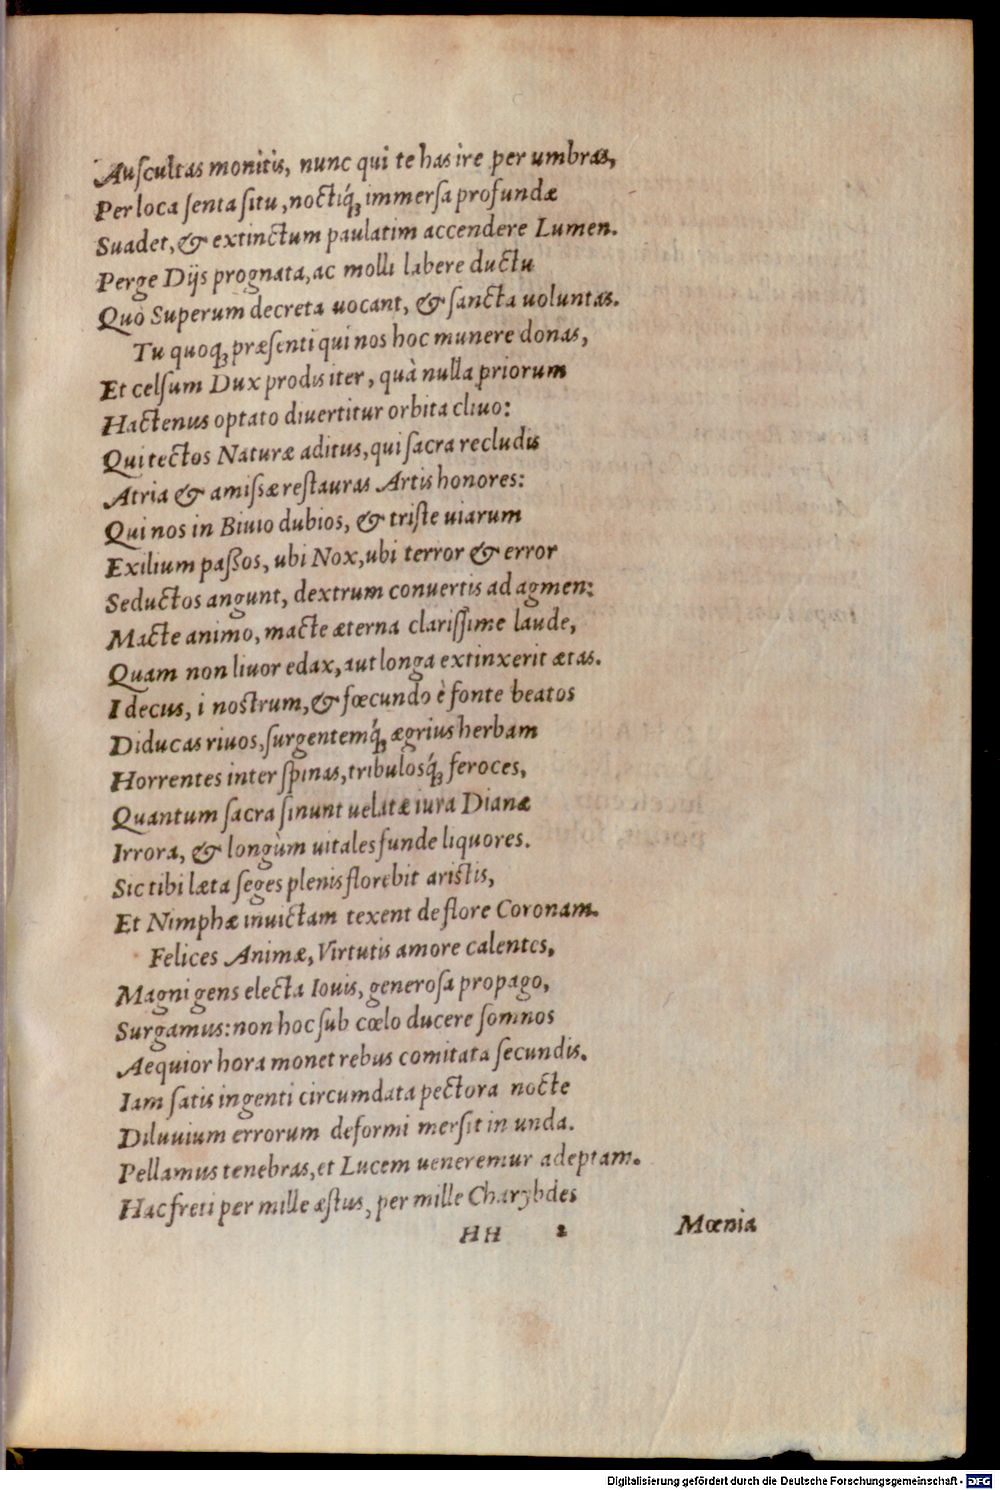 Auſcultas monitis, nunc qui te has ire per umbras,
Per loca ſenta ſitu, noctiq́ꝫ immerſa profundæ
Suadet, & extinctum paulatim accendere Lumen.
Perge Dijs prognata, ac molli labere ductu
Quò Superum decreta uocant, & ſancta uoluntas.
Tu quoqꝫ præſenti qui nos hoc munere donas,
Et celſum Dux prodis iter, quà nulla priorum
Hactenus optato diuertitur orbita cliuo:
Qui tectos Naturæ aditus, qui ſacra recludis
Atria & amiſſæ reſtauras Artis honores:
Qui nos in Biuio dubios, & triſte uiarum
Exilium paſſos, ubi Nox, ubi terror & error
Seductos angunt, dextrum conuertis ad agmen:
Macte animo, macte æterna clariſſime laude,
Quam non liuor edax, aut longa extinxerit ætas.
I decus, i noſtrum, & fœcundo è fonte beatos
Diducas riuos, ſurgentemq́ꝫ ægrius herbam
Horrentes inter ſpinas, tribulosq́ꝫ feroces,
Quantum ſacra ſinunt uelitæ iura Dianæ
Irrora, & longùm uitales funde liquores.
Sic tibi læta ſeges plenis florebit ariſtis,
Et Nimphæ inuictam texent de flore Coronam.
Felices Animæ, Virtutis amore calentes,
Magni gens electa Iouis, generoſa propago,
Surgamus: non hoc ſub cœlo ducere ſomnos
Aequior hora monet rebus comitata ſecundis.
Iam ſatis ingenti circumdata pectora nocte
Diluuium errorum deformi merſit in unda.
Pellamus tenebras, et Lucem ueneremur adeptam.
Hac freti per mille æſtus, per mille Charybdes
HH 2 Mœnia
Digitalisierung gefördert durch die Deutsche Forschungsgemeinschaft - DFG